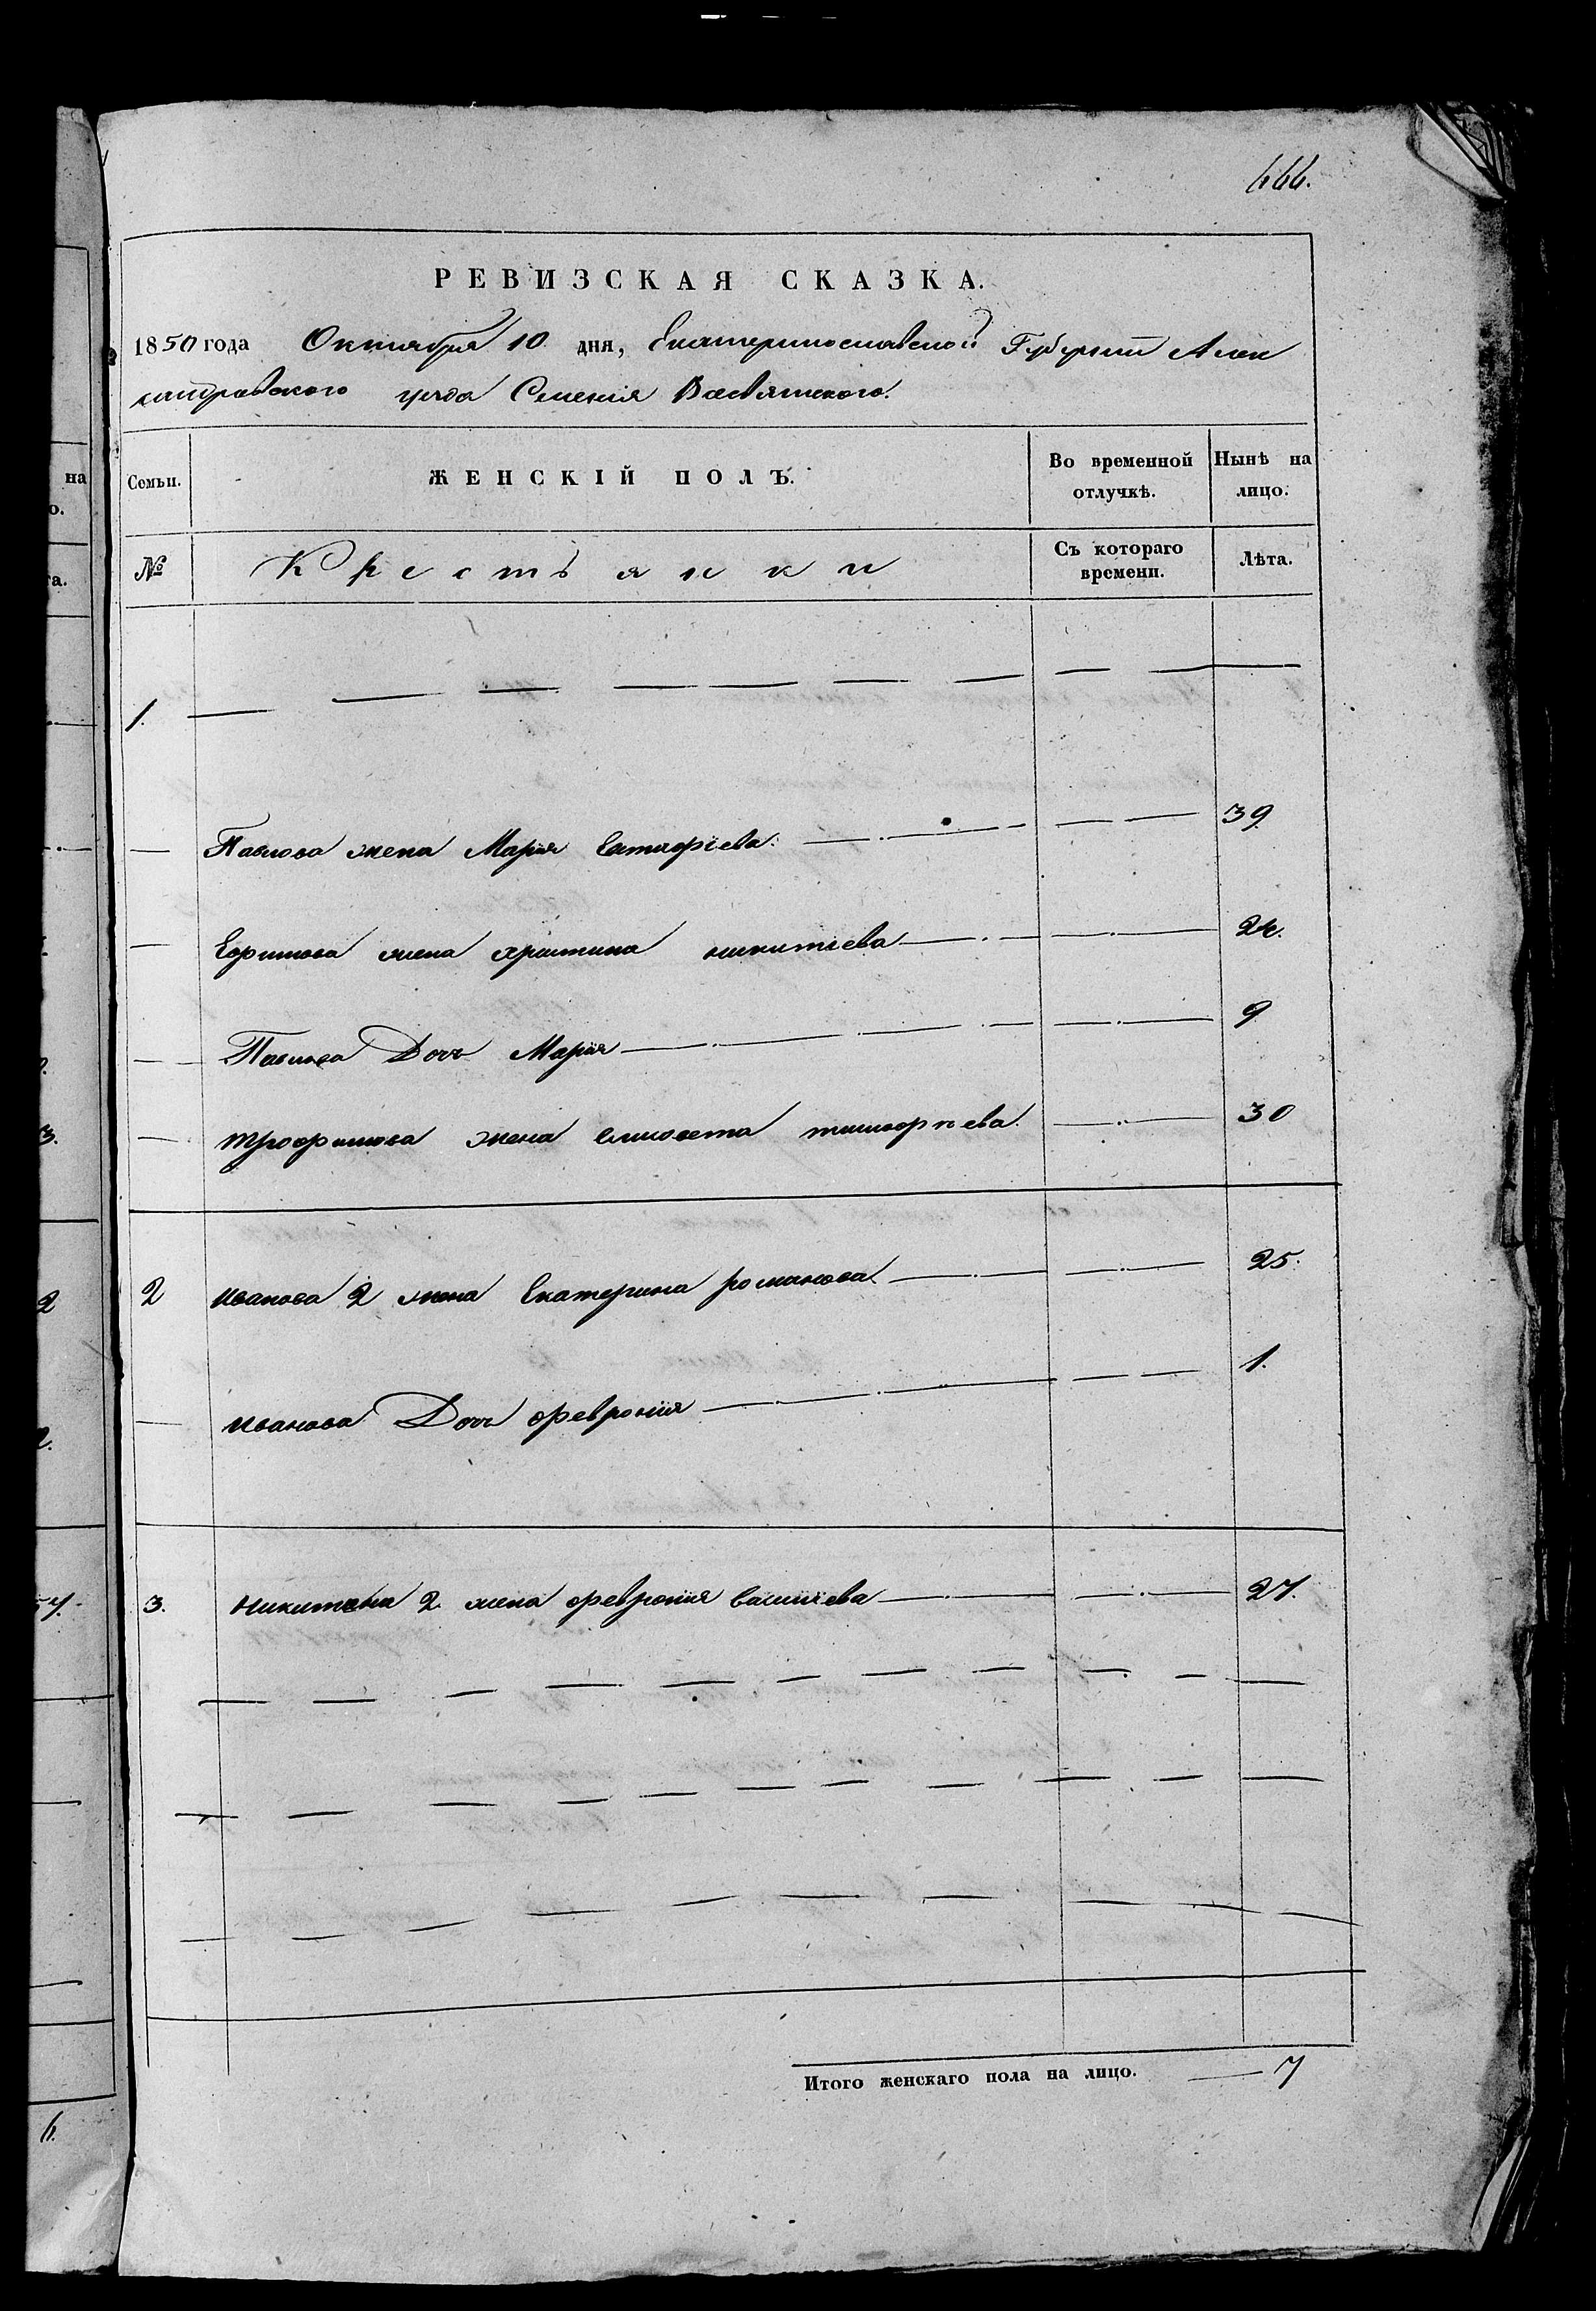 666.
РЕВИЗСКАЯ СКАЗКА.
1850 года Октября 10 дня, Екатеринославской Губернии Алек
сандравского уезда Селения Всесвятского.
на
о.
Семьи.
ЖЕНСКІЙ ПОЛЪ.
Во временной отлучкѣ.
Нынѣ на лицо.
та.
№
Крестьянки
Съ котораго времени.
Лѣта.
1.
Павлова жена Марія 39.
Ефимова жена христина никитіева 24.
Павлова Доч Марія 9
трофимова жена елисовета тимофѣева. 30
2 Иванова 2 жена Екатерина романова 25.
Иванова Доч февронія 1.
3. никитена 2 жена февронія васильева 27.
Итого женскаго пола на лицо. 7